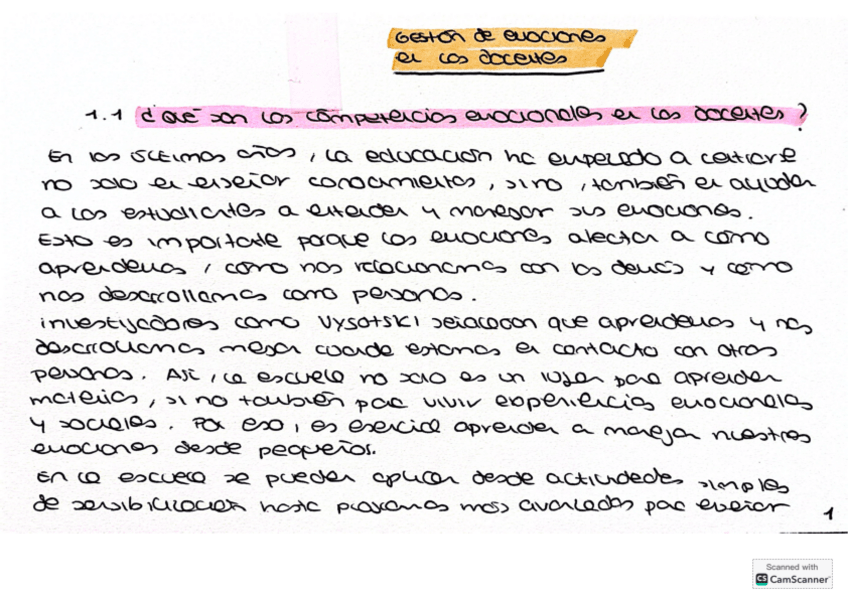 Gestión de emociones
en los docentes
1.1 ¿Qué son las competencias emocionales en los docentes?
En los últimos años, la educación ha empezado a centrarse
no solo en enseñar conocimientos, sino, también en ayudar
a los estudiantes a entender y manejar sus emociones.
Esto es importante porque las emociones afectan a cómo
aprendemos, cómo nos relacionamos con los demás y cómo
nos desarrollamos como personas.
investigadores como Vysotski señalaron que aprendemos y nos
desarrollamos mejor cuando estamos en contacto con otras
personas. Así, la escuela no solo es un lugar para aprender
materias, sino también para vivir experiencias emocionales
y sociales. Por eso, es esencial aprender a manejar nuestras
emociones desde pequeños.
En la escuela se pueden aplicar desde actividades simples
de sensibilización hasta programas más avanzados para enseñar
1
Scanned with
CS CamScanner